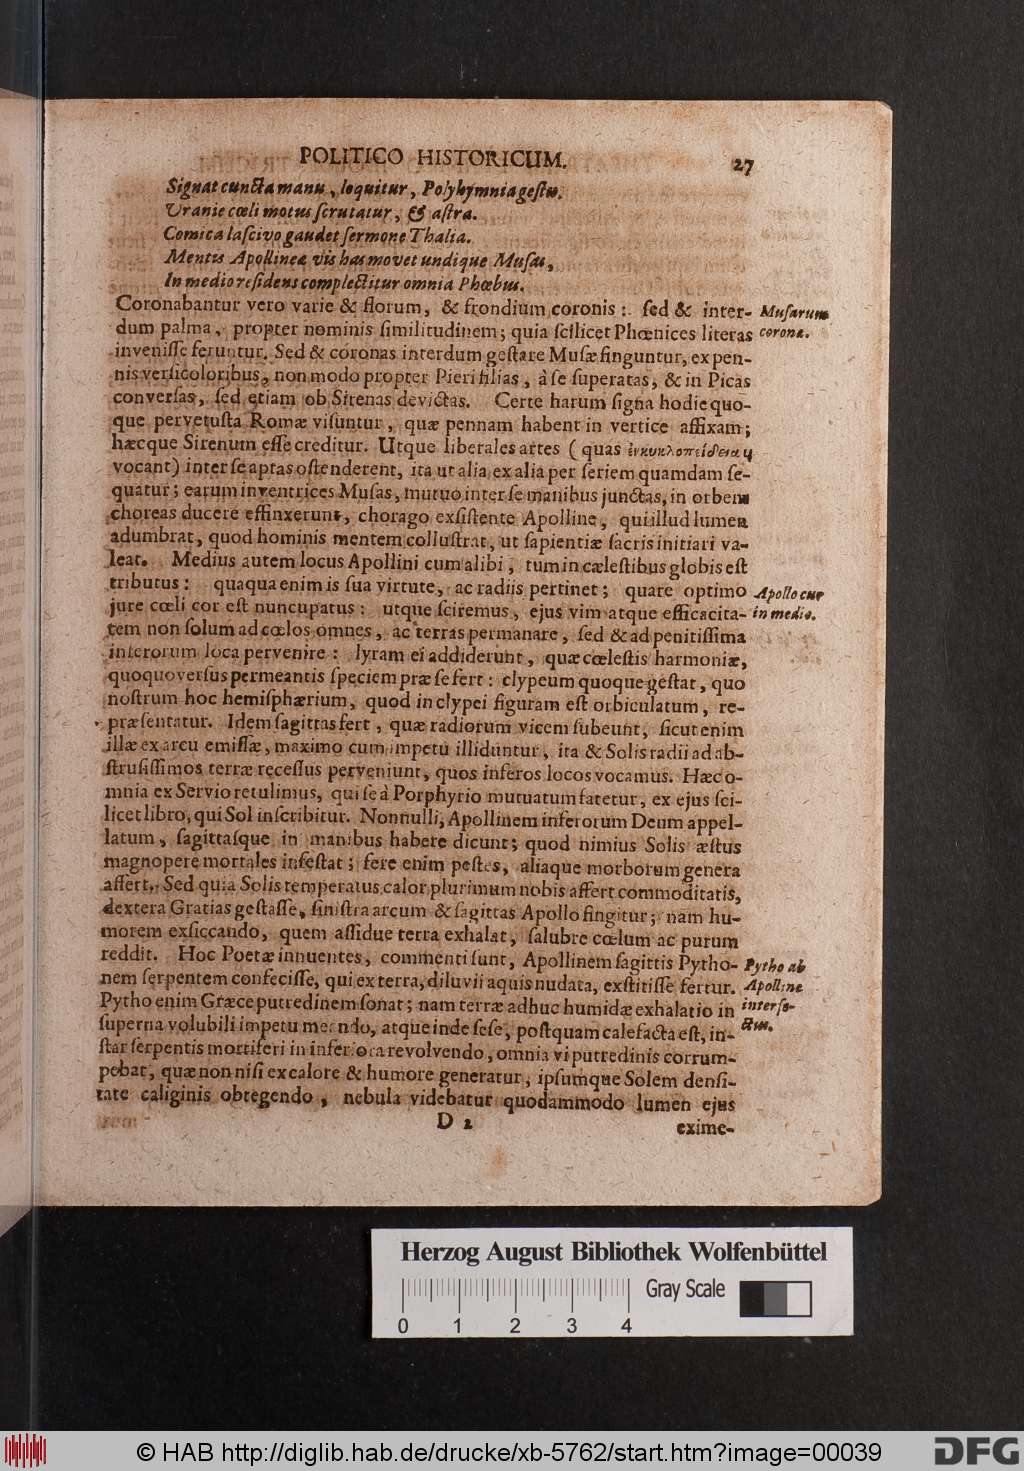 POLITICO HISTORICUM. 27
Signat cuncta manu, loquitur, Polyhymnia gestu.
Uranie cœli motus scrutatur, & astra.
Comica lascivo gaudet sermone Thalia.
Mentis Apollineæ vis has movet undique Musas,
In medio residens complectitur omnia Phœbus.
Coronabantur vero varie & florum, & frondium coronis: sed & inter-
dum palma, propter nominis similitudinem; quia scilicet Phœnices literas
invenisse feruntur. Sed & coronas interdum gestare Musæ finguntur, ex pen-
nis versicoloribus, non modo propter Pieri filias, à se superatas, & in Picas
conversas, sed etiam ob Sirenas devictas. Certe harum signa hodie quo-
que pervetusta Romæ visuntur, quæ pennam habent in vertice affixam;
hæcque Sirenum esse creditur. Utque liberales artes (quas
vocant) inter se aptas ostenderent, ita ut alia ex alia per seriem quamdam se-
quatur; earum inventrices Musas, mutuo inter se manibus junctas, in orbem
choreas ducere effinxerunt, chorago exsistente Apolline, qui illud lumen
adumbrat, quod hominis mentem collustrat, ut sapientiæ sacris initiari va-
leat. Medius autem locus Apollini cum alibi, tum in cælestibus globis est
tributus: quaqua enim is sua virtute, ac radiis pertinet; quare optimo
jure cœli cor est nuncupatus: utque sciremus, ejus vim atque efficacita-
tem non solum ad cœlos omnes, ac terras permanare, sed & ad penitissima
inferorum loca pervenire: lyram ei addiderunt, quæ cœlestis harmoniæ,
quoquoversus permeantis speciem præ se fert: clypeum quoque gestat, quo
nostrum hoc hemisphærium, quod in clypei figuram est orbiculatum, re-
præsentatur. Idem sagittas fert, quæ radiorum vicem subeunt, sicut enim
illæ ex arcu emissæ, maximo cum impetu illiduntur, ita & Solis radii ad ab-
strusissimos terræ recessus perveniunt, quos inferos locos vocamus. Hæc o-
mnia ex Servio retulimus, qui se à Porphyrio mutuatum fatetur, ex ejus sci-
licet libro, qui Sol inscribitur. Nonnulli, Apollinem inferorum Deum appel-
latum, sagittasque in manibus habere dicunt; quod nimius Solis æstus
magnopere mortales infestat; fere enim pestes, aliaque morborum genera
affert. Sed quia Solis temperatus calor plurimum nobis affert commoditatis,
dextera Gratias gestasse, sinistra arcum & sagittas Apollo fingitur; nam hu-
morem exsiccando, quem assidue terra exhalat, salubre cœlum ac purum
reddit. Hoc Poetæ innuentes, commenti sunt, Apollinem sagittis Pytho-
nem serpentem confecisse, qui ex terra, diluvii aquis nudata, exstitisse fertur.
Pytho enim Græce putredinem sonat; nam terræ adhuc humidæ exhalatio in
superna volubili impetu meando, atque inde sese, postquam calefacta est, in-
star serpentis mortiferi in inferiora revolvendo, omnia vi putredinis corrum-
pebat, quæ non nisi ex calore & humore generatur, ipsumque Solem densi-
tate caliginis obtegendo, nebula videbatur quodammodo lumen ejus
D 2 exime-
Musarum
corona.
Apollo cur
in medio.
Pytho ab
Apolline
interfe-
ctus.
Herzog August Bibliothek Wolfenbüttel
Gray Scale
0 1 2 3 4
© HAB http://diglib.hab.de/drucke/xb-5762/start.htm?image=00039
DFG